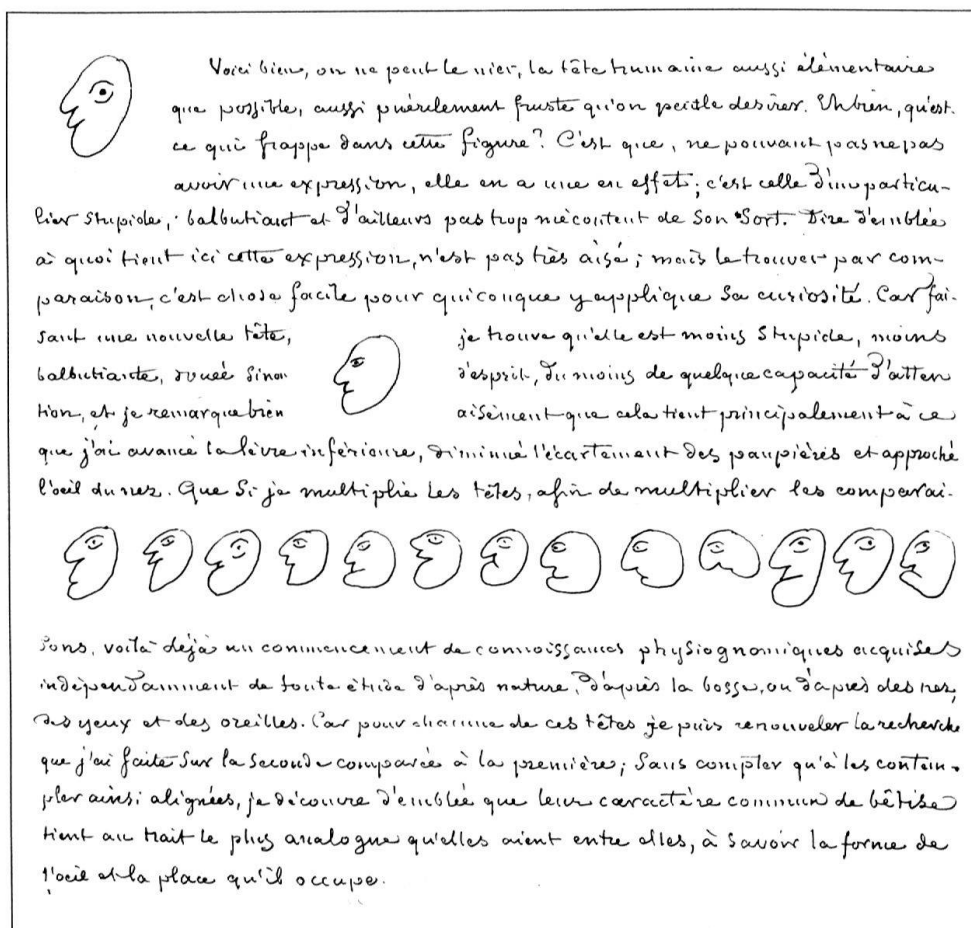 Voici bien, on ne peut le nier, la tête humaine aussi élémentaire
que possible, aussi puérilement fruste qu'on peut le désirer. Eh bien, qu'est-
ce qui frappe dans cette figure? C'est que, ne pouvant pas ne pas
avoir une expression, elle en a une en effet; c'est celle d'un particu-
lier stupide, balbutiant et d'ailleurs pas trop mécontent de son sort. Dire d'emblée
à quoi tient ici cette expression, n'est pas très aisé; mais le trouver par com-
paraison, c'est chose facile pour quiconque y applique sa curiosité. Car fai-
sant une nouvelle tête, je trouve qu'elle est moins stupide, moins
balbutiante, douée sinon d'esprit, du moins de quelque capacité d'atten
tion, et je remarque bien aisément que cela tient principalement à ce
que j'ai avancé la lèvre inférieure, diminué l'écartement des paupières et approché
l'oeil du nez. Que si je multiplie les têtes, afin de multiplier les comparai-
sons, voilà déjà un commencement de connoissances physiognomiques acquises
indépendamment de toute étude d'après nature, d'après la bosse, ou d'après des nez,
des yeux et des oreilles. Car pour chacune de ces têtes je puis renouveler la recherche
que j'ai faite sur la seconde comparée à la première; sans compter qu'à les contem-
pler ainsi alignées, je découvre d'emblée que leur caractère commun de bêtise
tient au trait le plus analogue qu'elles aient entre elles, à savoir la forme de
l'oeil et la place qu'il occupe.